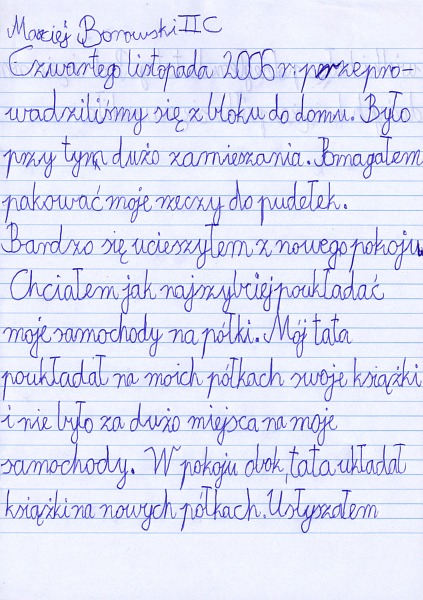 Maciej Borowski II C
Czwartego listopada 2006 r. przepro-
wadziliśmy się z bloku do domu. Było
przy tym dużo zamieszania. Pomagałem
pakować moje rzeczy do pudełek.
Bardzo się ucieszyłem z nowego pokoju.
Chciałem jak najszybciej poukładać
moje samochody na półki. Mój tata
poukładał na moich półkach swoje książki
i nie było za dużo miejsca na moje
samochody. W pokoju obok, tata układał
książki na nowych półkach. Usłyszałem